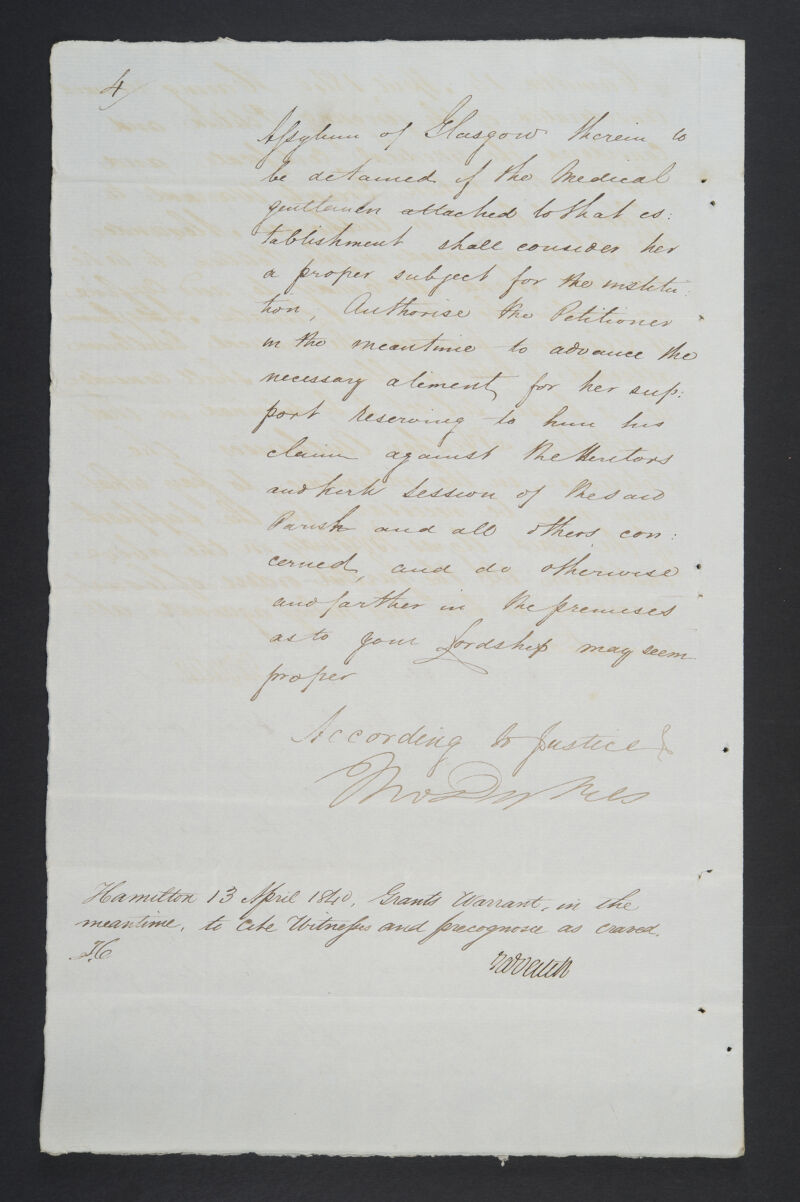 4/
Assylum of Glasgow therein to
be detained if the Medical
gentlemen attached to that es:
tablishment shall consider her
a proper subject for the institu:
tion, Authorise the Petitioner
in the meantime to advance the
necessary aliment, for her sup:
port reserving to him his
claim against the Heritors
and kirk Session of the said
Parish and all others con:
cerned, and do otherwise
and farther in the premises
as to your Lordship may seem
proper
According to Justice &
Thos Dykes
Hamilton 13 April 1840, Grants Warrant, in the
meantime, to cite Witnesses and precognosce as craved.